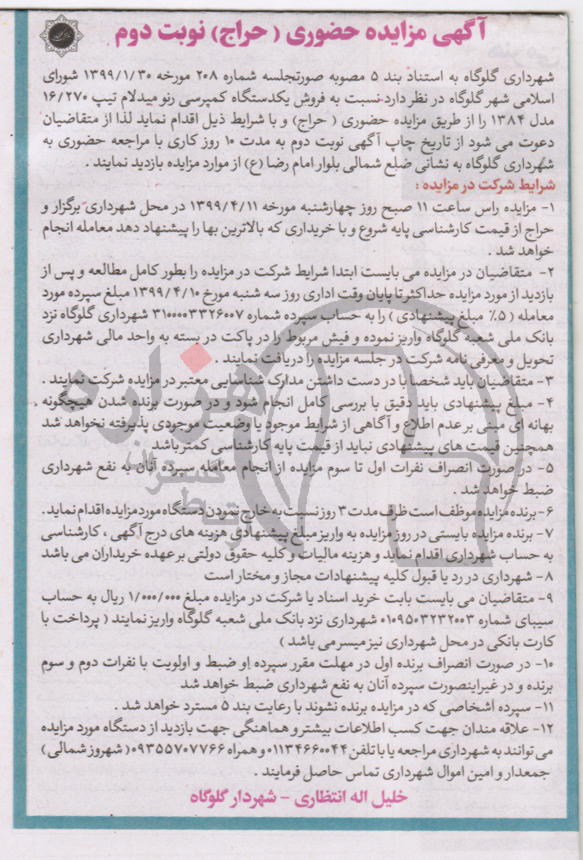 آگهی مزایده حضوری ( حراج) نوبت دوم
شهرداری گلوگاه به استناد بند ۵ مصوبه صورتجلسه شماره ۲۰۸ مورخه ۱۳۹۹/۱/۳۰ شورای
اسلامی شهر گلوگاه در نظر دارد نسبت به فروش یکدستگاه کمپرسی رنو میدلام تیپ ۱۶/۲۷۰
مدل ۱۳۸۴ را از طریق مزایده حضوری ( حراج) و با شرایط ذیل اقدام نماید لذا از متقاضیان
دعوت می شود از تاریخ چاپ آگهی نوبت دوم به مدت ۱۰ روز کاری با مراجعه حضوری به
شهرداری گلوگاه به نشانی ضلع شمالی بلوار امام رضا (ع) از موارد مزایده بازدید نمایند .
شرایط شرکت در مزایده :
۱- مزایده راس ساعت ۱۱ صبح روز چهارشنبه مورخه ۱۳۹۹/۴/۱۱ در محل شهرداری برگزار و
حراج از قیمت کارشناسی پایه شروع و با خریداری که بالاترین بها را پیشنهاد دهد معامله انجام
خواهد شد .
۲- متقاضیان در مزایده می بایست ابتدا شرایط شرکت در مزایده را بطور کامل مطالعه و پس از
بازدید از مورد مزایده حداکثر تا پایان وقت اداری روز سه شنبه مورخ ۱۳۹۹/۴/۱۰ مبلغ سپرده مورد
معامله ( ۵٪ مبلغ پیشنهادی ) را به حساب سپرده شماره ۳۱۰۰۰۰۳۳۲۶۰۰۷ شهرداری گلوگاه نزد
بانک ملی شعبه گلوگاه واریز نموده و فیش مربوط را در پاکت در بسته به واحد مالی شهرداری
تحویل و معرفی نامه شرکت در جلسه مزایده را دریافت نمایند .
۳- متقاضیان باید شخصا با در دست داشتن مدارک شناسایی معتبر در مزایده شرکت نمایند .
۴- مبلغ پیشنهادی باید دقیق با بررسی کامل انجام شود و در صورت برنده شدن هیچگونه
بهانه ای مبنی بر عدم اطلاع و آگاهی از شرایط موجود یا وضعیت موجودی پذیرفته نخواهد شد
همچنین قیمت های پیشنهادی نباید از قیمت پایه کارشناسی کمتر باشد
۵- در صورت انصراف نفرات اول تا سوم مزایده از انجام معامله سپرده آنان به نفع شهرداری
ضبط خواهد شد .
۶- برنده مزایده موظف است ظرف مدت ۳ روز نسبت به خارج نمودن دستگاه مورد مزایده اقدام نماید .
۷- برنده مزایده بایستی در روز مزایده به واریز مبلغ پیشنهادی هزینه های درج آگهی ، کارشناسی
به حساب شهرداری اقدام نماید و هزینه مالیات و کلیه حقوق دولتی بر عهده خریداران می باشد
۸- شهرداری در رد یا قبول کلیه پیشنهادات مجاز و مختار است
۹- متقاضیان می بایست بابت خرید اسناد یا شرکت در مزایده مبلغ ۱/۰۰۰/۰۰۰ ریال به حساب
سیبای شماره ۰۱۰۹۵۰۳۲۳۲۰۰۳ شهرداری نزد بانک ملی شعبه گلوگاه واریز نمایند ( پرداخت با
کارت بانکی در محل شهرداری نیز میسر می باشد )
۱۰- در صورت انصراف برنده اول در مهلت مقرر سپرده او ضبط و اولویت با نفرات دوم و سوم
برنده و در غیراینصورت سپرده آنان به نفع شهرداری ضبط خواهد شد
۱۱- سپرده اشخاصی که در مزایده برنده نشوند با رعایت بند ۵ مسترد خواهد شد .
۱۲- علاقه مندان جهت کسب اطلاعات بیشتر و هماهنگی جهت بازدید از دستگاه مورد مزایده
می توانند به شهرداری مراجعه یا با تلفن ۰۱۱۳۴۶۶۰۰۴۴ و همراه ۰۹۳۵۵۷۰۷۷۶۶ (شهروز شمالی)
جمعدار و امین اموال شهرداری تماس حاصل فرمایند .
خلیل اله انتظاری - شهردار گلوگاه
هزاره